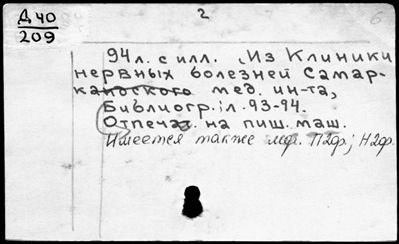 Д 40
209
2
6
94 л. с илл. (Из Клиники
нервных болезней Самар-
кандского мед. ин-та,
Библиогр.: л. 93-94.
Отпечат. на пиш. маш.
Имеется также мф. П2ф.; Н2ф.